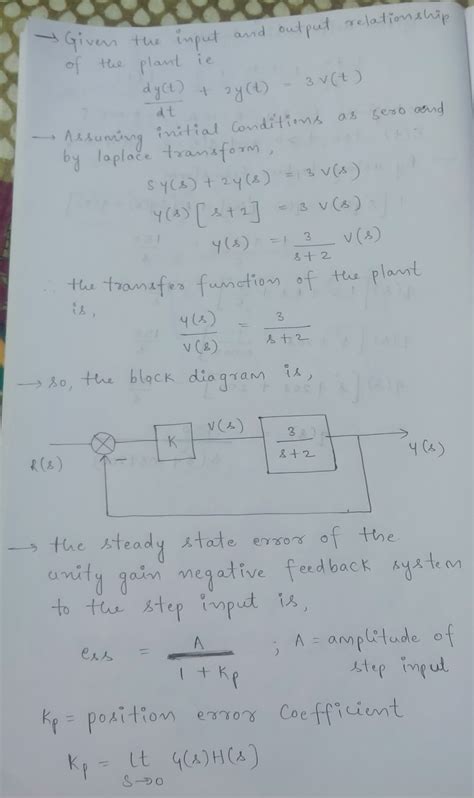 → Given the input and output relationship
of the plant ie
dy(t)/dt + 2y(t) - 3V(t)
→ Assuming initial conditions as zero and
by laplace transform,
sy(s) + 2y(s) = 3V(s)
y(s)[s+2] = 3V(s)
y(s) = 3/(s+2) V(s)
∴ the transfer function of the plant
is,
y(s)/V(s) = 3/(s+2)
→ so, the block diagram is,
R(s) - K V(s) 3/(s+2) y(s)
→ the steady state error of the
unity gain negative feedback system
to the step input is,
ess = A/(1 + Kp) ; A = amplitude of
step input
Kp = position error coefficient
Kp = lt s→0 G(s)H(s)